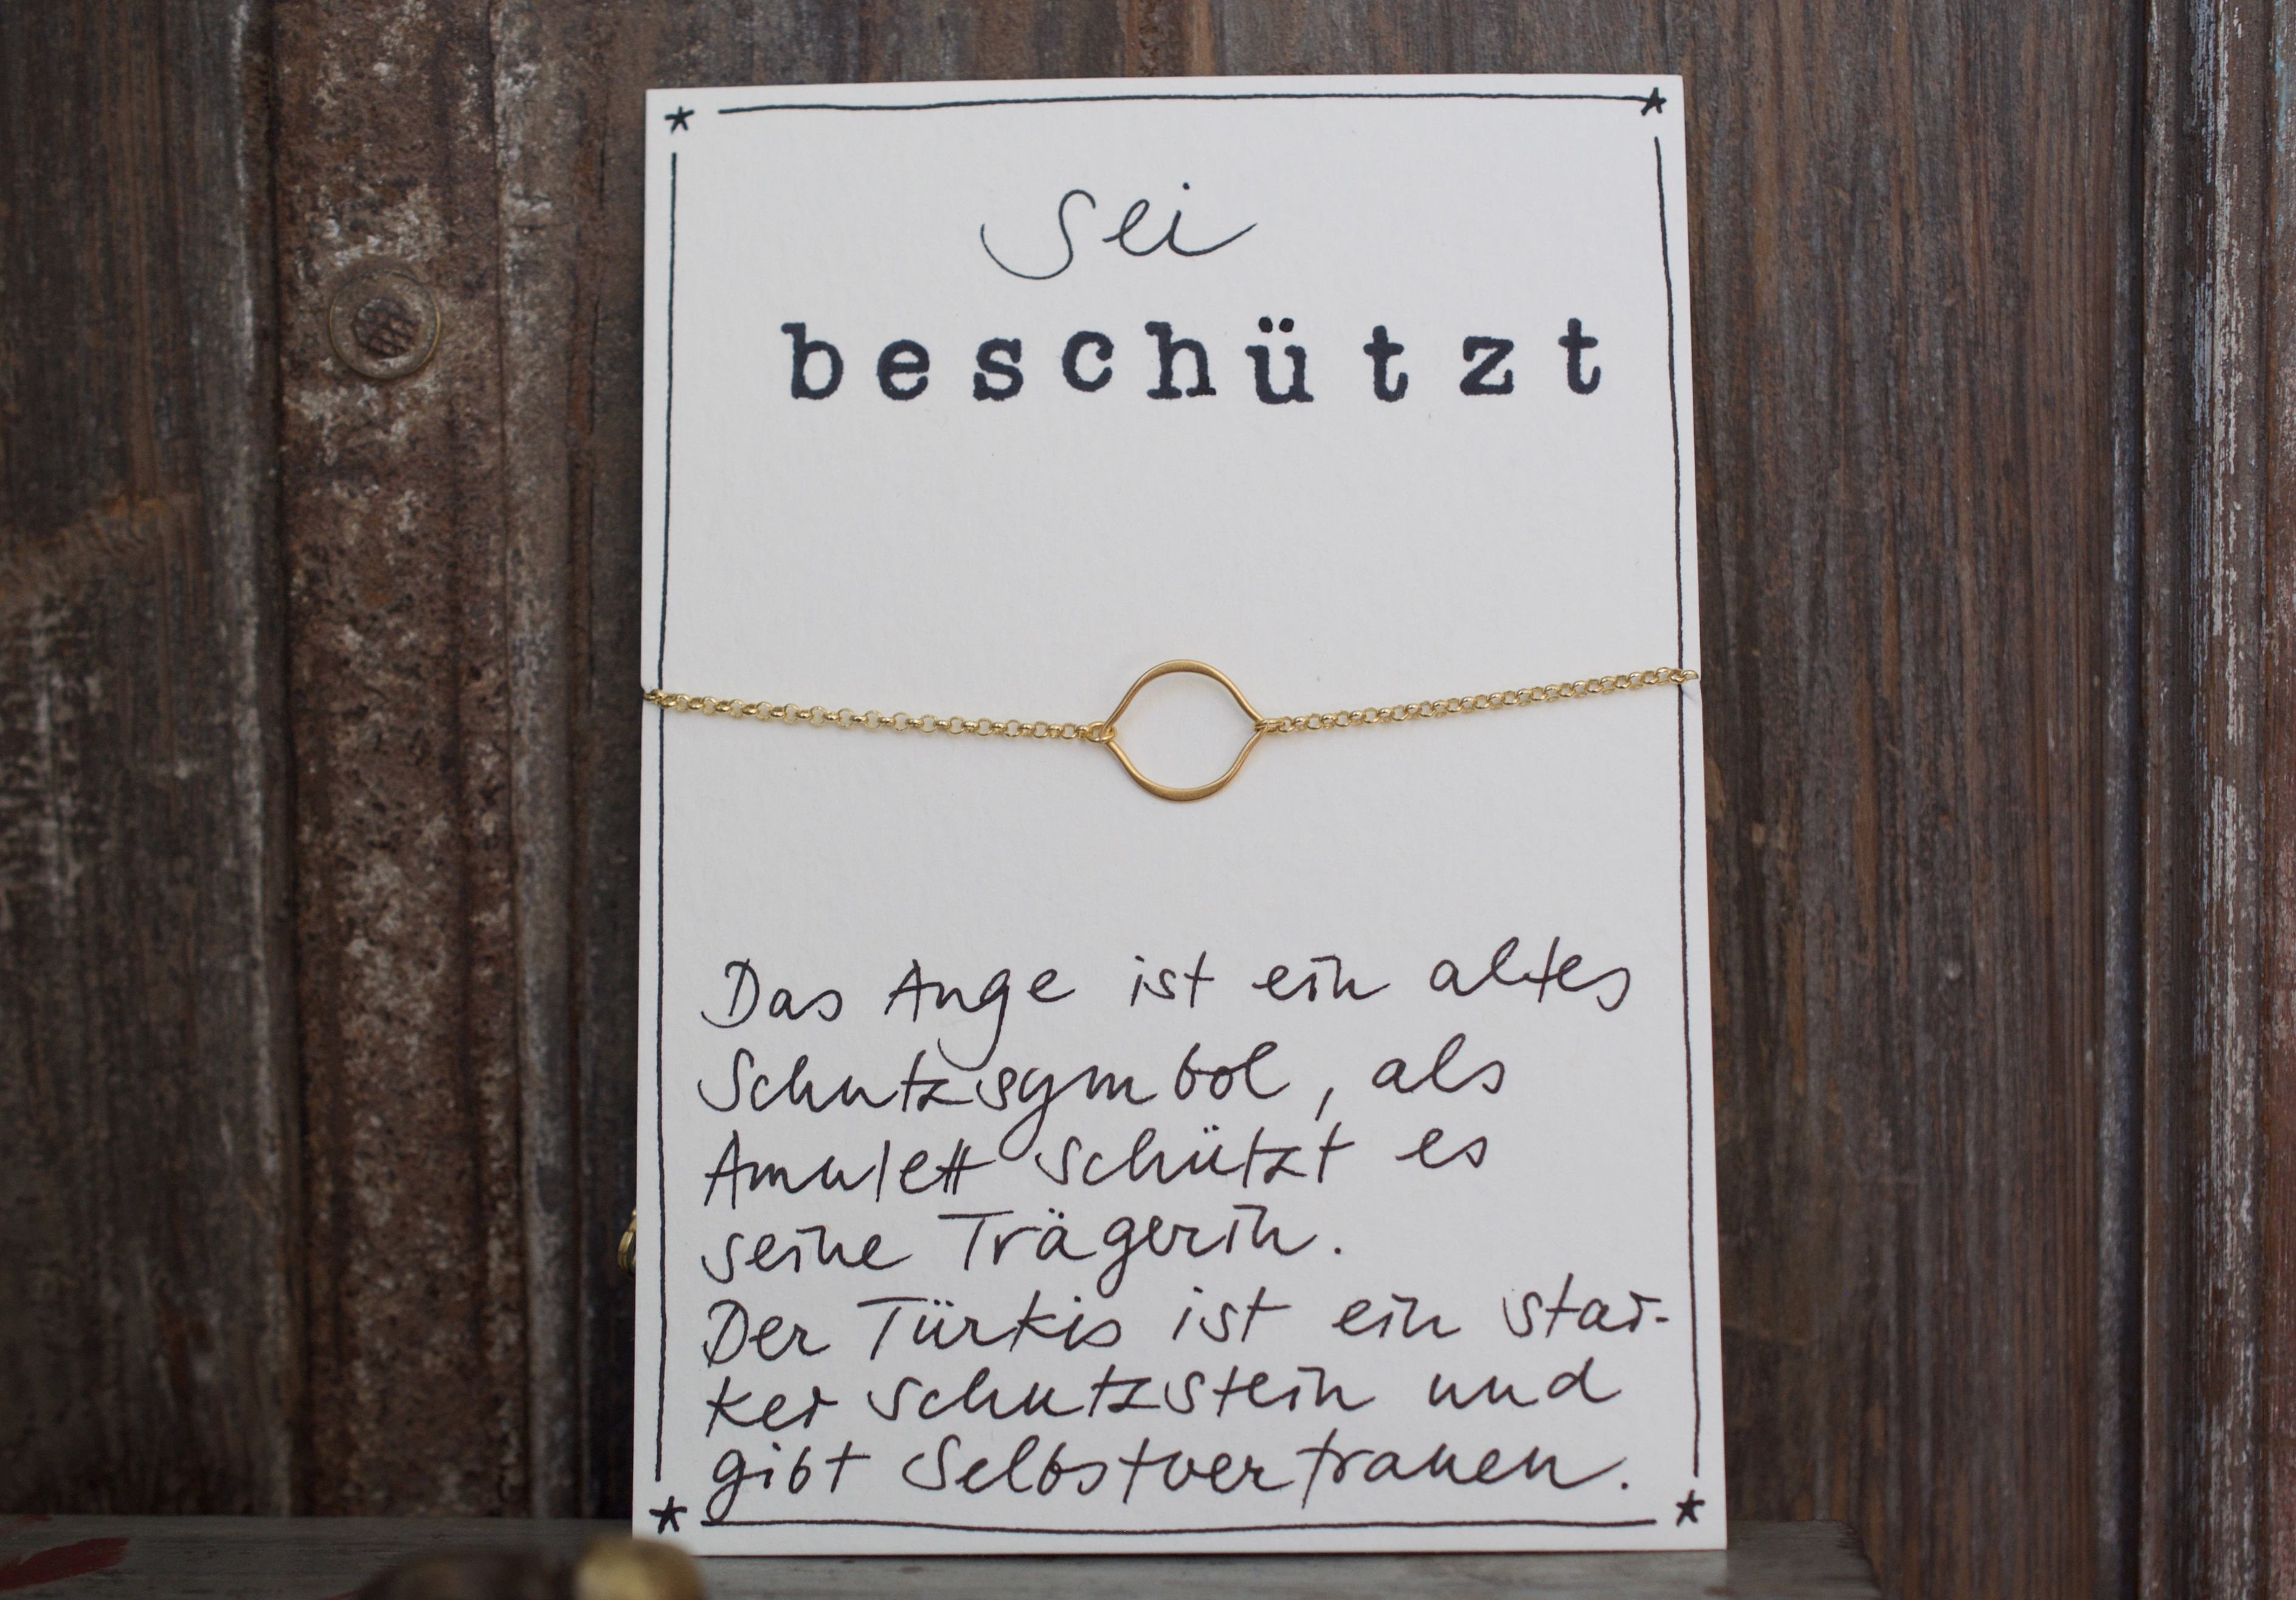 Sei
beschützt
Das Auge ist ein altes
Schutzsymbol, als
Amulett schützt es
seine Trägerin.
Der Türkis ist ein star-
ker Schutzstein und
gibt Selbstvertrauen.